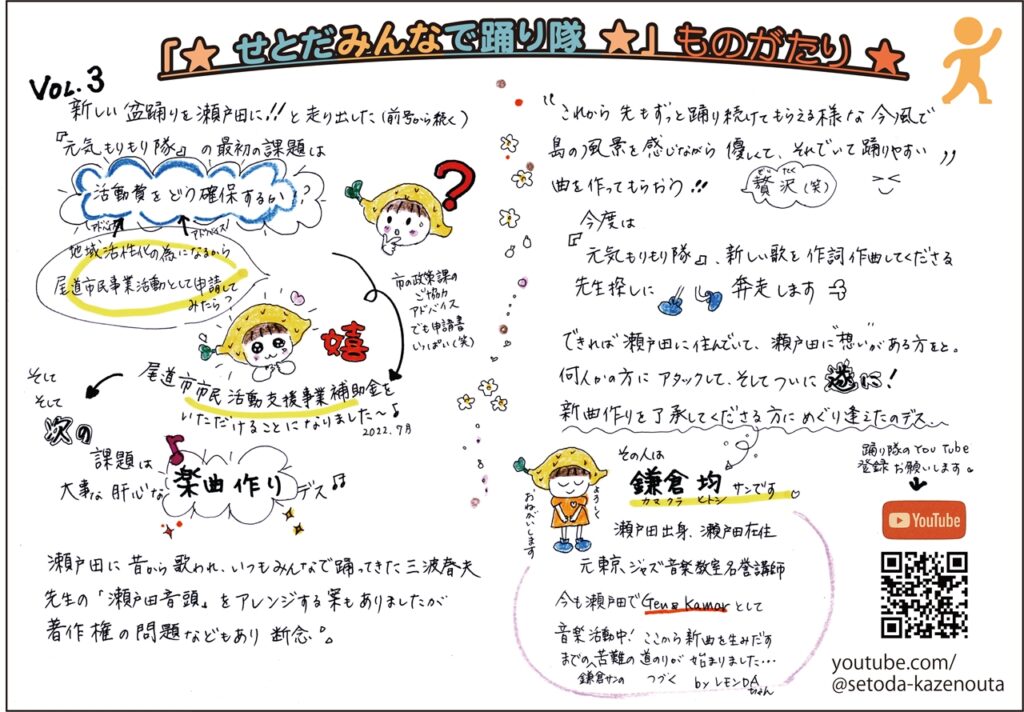 「★ せとだみんなで踊り隊 ★」ものがたり ★
VOL.3
新しい盆踊りを瀬戸田に!!と走り出した(前号から続く)
『元気もりもり隊』の最初の課題は
活動費をどう確保するか?
アドバイス
アドバイス
地域活性化の為になるから
尾道市民事業活動として申請して
みたら?
?
市の政策課の
ご協力
アドバイス
でも申請書
いっぱい(笑)
嬉
尾道市市民活動支援事業補助金を
いただけることになりました〜♪
2022.7月
そして
そして
次の
課題は
大事な肝心な
楽曲作り
デス♫
瀬戸田に昔から歌われ、いつもみんなで踊ってきた三波春夫
先生の「瀬戸田音頭」をアレンジする案もありましたが
著作権の問題などもあり断念。。
"これから先もずっと踊り続けてもらえる様な今風で
島の風景を感じながら優しくて、それでいて踊りやすい
曲を作ってもらおう!!"
ぜいたく
贅沢(笑)
今度は
『元気もりもり隊』、新しい歌を作詞作曲してくださる
先生探しに奔走します
できれば瀬戸田に住んでいて、瀬戸田に"想い"がある方をと。
何人かの方にアタックして、そしてついに遂に!
新曲作りを了承してくださる方にめぐり逢えたのデス…
その人は
鎌倉 均 サンです。
カマクラ ヒトシ
よろしく
おねがいします
瀬戸田出身、瀬戸田在住
元東京、ジャズ音楽教室名誉講師
今も瀬戸田でGen&Kamarとして
音楽活動中! ここから新曲を生みだす
までの苦難の道のりが始まりました…
鎌倉サンの
つづく
by レモンDAちゃん
踊り隊のYouTube
登録お願いします。
YouTube
youtube.com/
@setoda-kazenouta